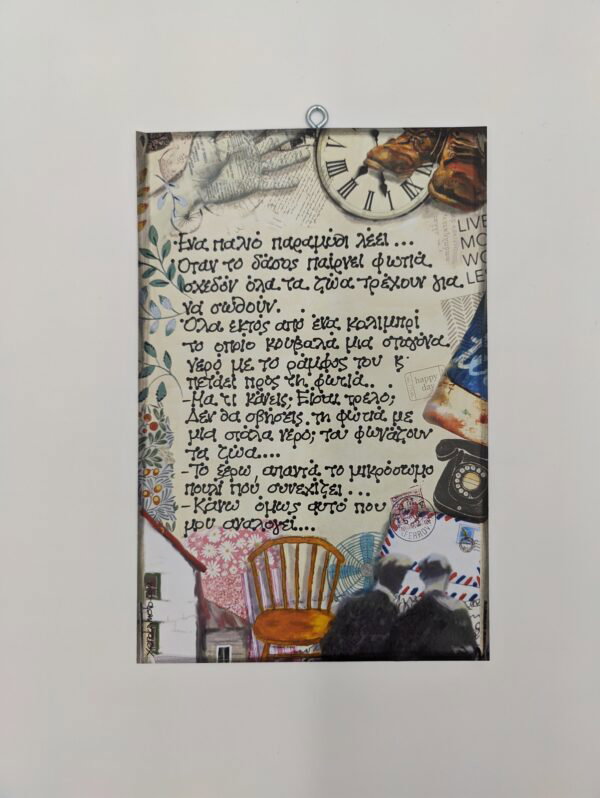 Ένα παλιό παραμύθι λέει...
Όταν το δάσος παίρνει φωτιά
σχεδόν όλα τα ζώα τρέχουν για
να σωθούν..
Όλα εκτός από ένα κολιμπρί
το οποίο κουβαλά μια σταγόνα
νερό με το ράμφος του κ'
πετάει προς τη φωτιά..
-Μα τι κάνεις; Είσαι τρελό;
Δεν θα σβήσεις τη φωτιά με
μια στάλα νερό; του φωνάζουν
τα ζώα....
-Το ξέρω, απαντά το μικρόσωμο
πουλί που συνεχίζει...
-Κάνω όμως αυτό που
μου αναλογεί...
LIVE
happy
day